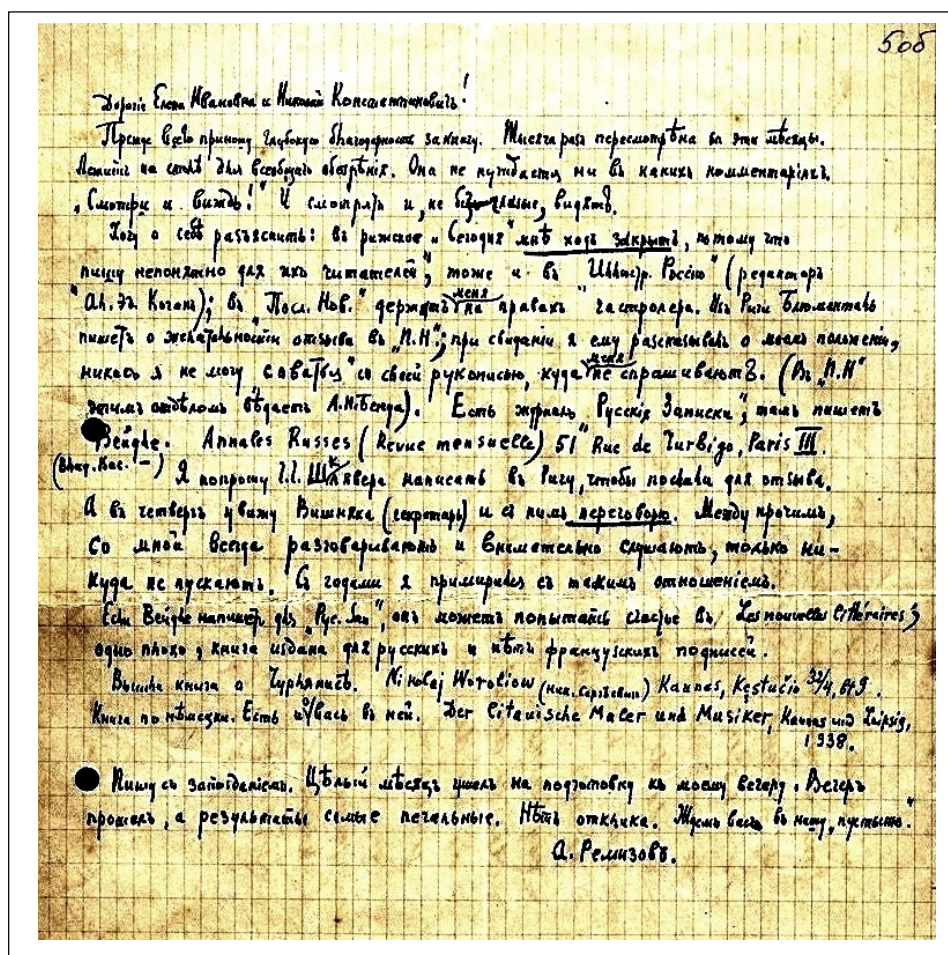 506
Дорогіе Елена Ивановна и Николай Константиновичъ!
Прежде всего приношу глубокую благодарность за книгу. Тысяча разъ пересмотрѣна за эти мѣсяцы.
Лежитъ на столѣ для всеобщаго обозрѣнія. Она не нуждается ни въ какихъ комментаріяхъ.
„Смотри и виждь!“ И смотрятъ и, не безглазые, видятъ.
Хочу о себѣ разъяснить: въ рижское „Сегодня“ мнѣ ходъ закрытъ, потому что
пишу непонятно для ихъ читателей“, тоже и въ „Иллюстр. Россію“ (редакторъ
Ал. Эд. Коганъ); въ „Посл. Нов.“ держатъ меня на правахъ гастролера. Изъ Риги Блюменталь
пишетъ о желательности отзыва въ „П.Н.“; при свиданіи я ему разсказывалъ о моемъ положеніи,
никакъ я не могу соваться со своей рукописью, куда меня не спрашиваютъ. (Въ „П.Н“
этимъ отдѣломъ вѣдаетъ А.Н.Бенуа). Есть журналъ „Русскія Записки“, тамъ пишетъ
Вейдле. Annales Russes (Revue mensuelle) 51 Rue de Turbigo, Paris III.
(Влад. Вас. –) Я попрошу Г.Г. Шклявера написать въ Ригу, чтобы послали для отзыва.
А въ четвергъ увижу Вишняка (секретарь) и съ нимъ переговорю. Между прочимъ,
со мной всегда разговариваютъ и внимательно слушаютъ, только ни-
куда не пускаютъ. Съ годами я примирился съ такимъ отношеніемъ.
Если Вейдле напишетъ для „Рус. Зап“, онъ можетъ попытать счастье въ Les nouvelles littéraires;
одно плохо, книга издана для русскихъ и нѣтъ французскихъ подписей.
Вышла книга о Чурлянисѣ. Nikolaj Worobiow (Ник. Сергѣевич) Kaunas, Kęstučio 32/4,
Книга по нѣмецки. Есть и о васъ въ ней. Der litauische Maler und Musiker, Kaunas und Leipzig,
1938.
Пишу съ запозданіемъ. Цѣлый мѣсяцъ ушелъ на подготовку къ моему вечеру. Вечеръ
прошелъ, а результаты самые печальные. Нѣтъ отклика. Ждемъ васъ въ нашу „пустыню“.
А. Ремизовъ.